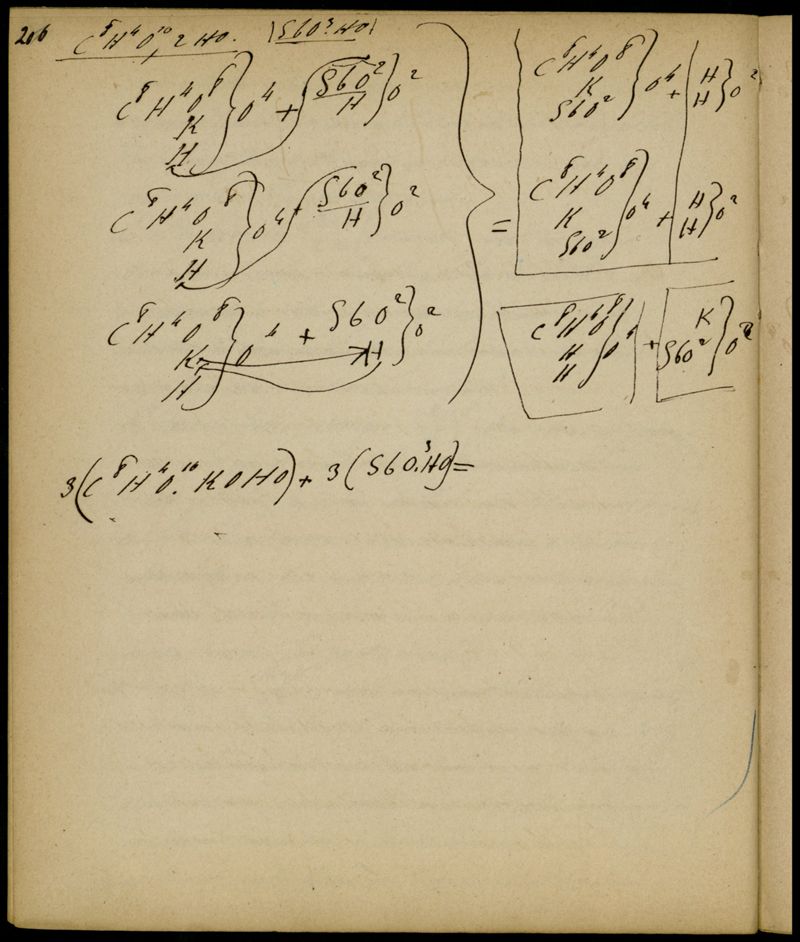 206 C⁸H⁴O¹⁰, 2 HO. (SbO³.HO)
C⁸H⁴O⁸
K
H } O⁴ + SbO²
H } O²
C⁸H⁴O⁸
K
H } O⁴ + SbO²
H } O²
C⁸H⁴O⁸
K
H } O⁴ + SbO²
H } O²
=
C⁸H⁴O⁸
K
SbO² } O⁴ + H
H } O²
C⁸H⁴O⁸
K
SbO² } O⁴ + H
H } O²
C⁸H⁴O⁸
H
H } O⁴ + K
SbO² } O²
3(C⁸H⁴O¹⁰. KOHO) + 3(SbO³.HO) =